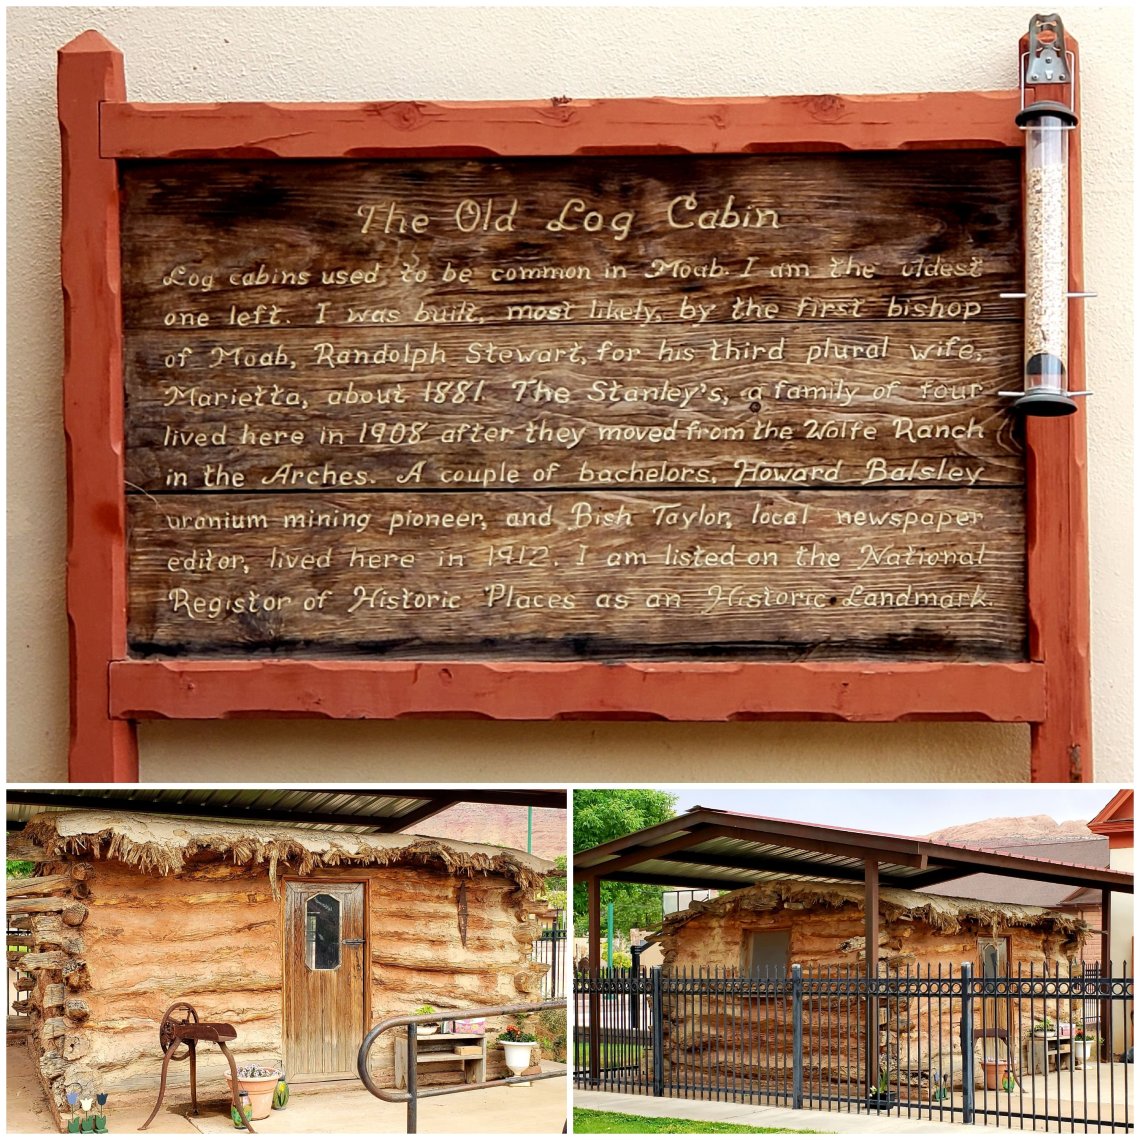 The Old Log Cabin
Log cabins used to be common in Moab. I am the oldest
one left. I was built, most likely, by the first bishop
of Moab, Randolph Stewart, for his third plural wife,
Marietta, about 1881. The Stanley's, a family of four
lived here in 1908 after they moved from the Wolfe Ranch
in the Arches. A couple of bachelors, Howard Balsley
uranium mining pioneer, and Bish Taylor, local newspaper
editor, lived here in 1912. I am listed on the National
Registor of Historic Places as an Historic Landmark.